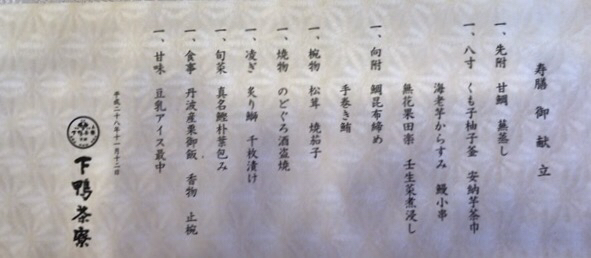 寿膳 御献立
一、先附 甘鯛 蕪蒸し
一、八寸 くも子柚子釜 安納芋茶巾
海老芋からすみ 鰻小串
無花果田楽 壬生菜煮浸し
一、向附 鯛昆布締め
手巻き鮪
一、椀物 松茸 焼茄子
一、焼物 のどぐろ酒盗焼
一、凌ぎ 炙り鯖 千枚漬け
一、旬菜 真名鰹朴葉包み
一、食事 丹波産栗御飯 香物 止椀
一、甘味 豆乳アイス最中
平成二十八年十一月十二日
下鴨茶寮